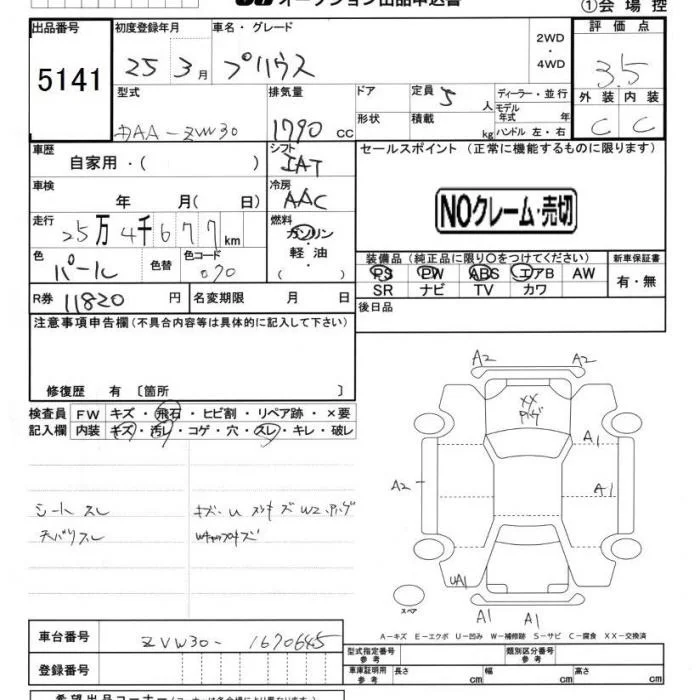 オークション出品申込書
①会場控
出品番号 初度登録年月 車名・グレード 評価点
5141 25 3月 プリウス 2WD・4WD 3.5
型式 排気量 ドア 定員 5人 ディーラー・並行 外装 内装
DAA-ZVW30 1790CC 形状 積載 kg モデル年式 年 ハンドル 左・右 C C
車歴 自家用・( ) シフト IAT セールスポイント(正常に機能するものに限ります)
車検 年 月( 日) 冷房 AAC NOクレーム・売切
走行 25万4千677km 燃料 ガソリン
軽油
色 パール 色替 色コード 070 ・( ) 装備品(純正品に限り○をつけてください) 新車保証書
PS PW ABS エアB AW 有・無
SR ナビ TV カワ
R券 11820円 名変期限 月 日 後日品
注意事項申告欄(不具合内容等は具体的に記入して下さい)
修復歴 有 〔箇所 〕
検査員 FW キズ・飛石・ヒビ割・リペア跡・×要
記入欄 内装 キズ・汚レ・コゲ・穴・スレ・キレ・破レ
シートスレ
天バリスレ
A2 A2
XX
A1
A2 A1
UA1
スペア
A1 A1
A-キズ E-エクボ U-凹み W-補修跡 S-サビ C-腐食 XX-交換済
車台番号 ZVW30-1670645
型式指定番号 参考 類別区分番号 参考
登録番号 車庫証明用 参考 長さ cm 幅 cm 高さ cm
希望出品コーナー(スペース等は各会場により異なります)